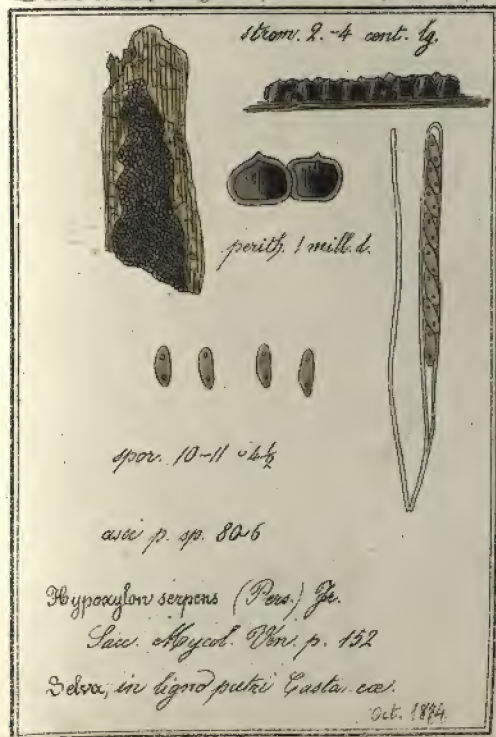 strom. 2.-4 cent. lg.
perith. 1 mill. d.
spor. 10-11 ⌣ 4½
asci p. sp. 80⌣6
Hypoxylon serpens (Pers.) Fr.
Sacc. Mycol. Ven. p. 152
Selva, in ligno putri
Oct. 1874